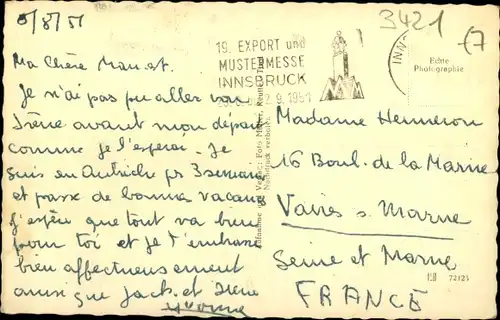 8/8/51
3421
19. EXPORT und
MUSTERMESSE
INNSBRUCK
9. 1951
INN
Echte
Photographie
Ma Chère
Je n'ai pas pu aller voir
Irène avant mon départ
comme je l'espérai. Je
suis en Autriche pr 3 semaines
et passe de bonnes vacances
J'espère que tout va bien
pour toi et je t'embrasse
bien affectueusement
ainsi que Jack. et Irène
Yvonne
Madame Henneron
16 Boul. de la Marne
Vaires s. Marne
Seine et Marne
FRANCE
72123